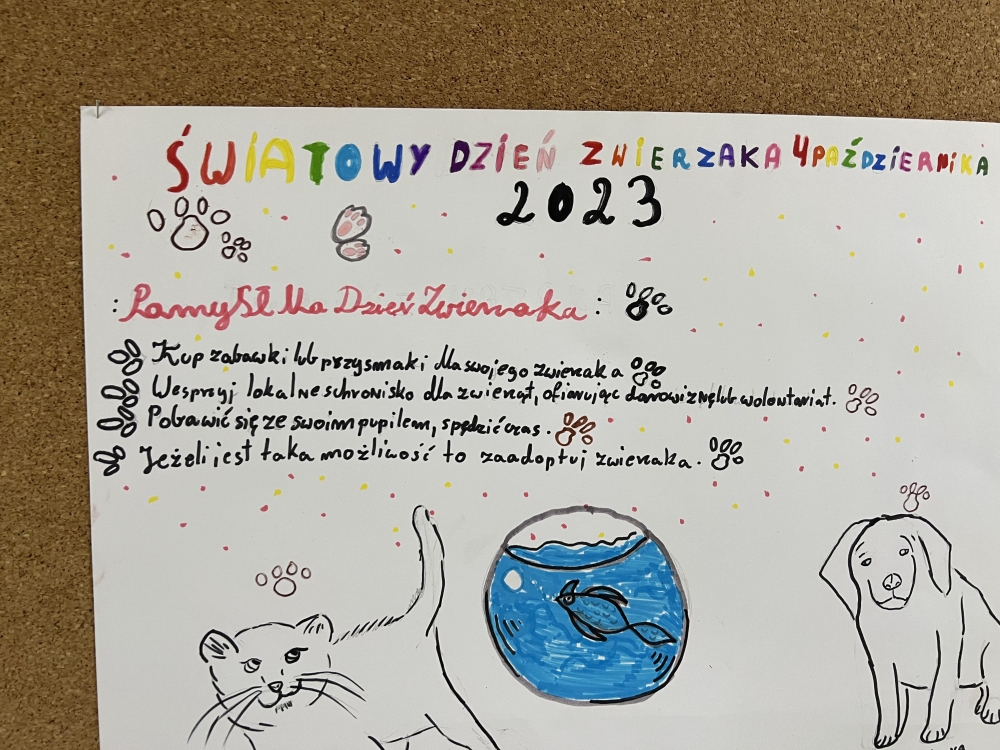 ŚWIATOWY DZIEŃ ZWIERZAKA 4 PAŹDZIERNIKA
2023
: Pomysł Na Dzień Zwierzaka :
Kup zabawki lub przysmaki dla swojego zwierzaka
Wesprzyj lokalne schronisko dla zwierząt, ofiarując darowiznę lub wolontariat.
Pobawić się ze swoim pupilem, spędzić czas.
Jeżeli jest taka możliwość to zaadoptuj zwierzaka.